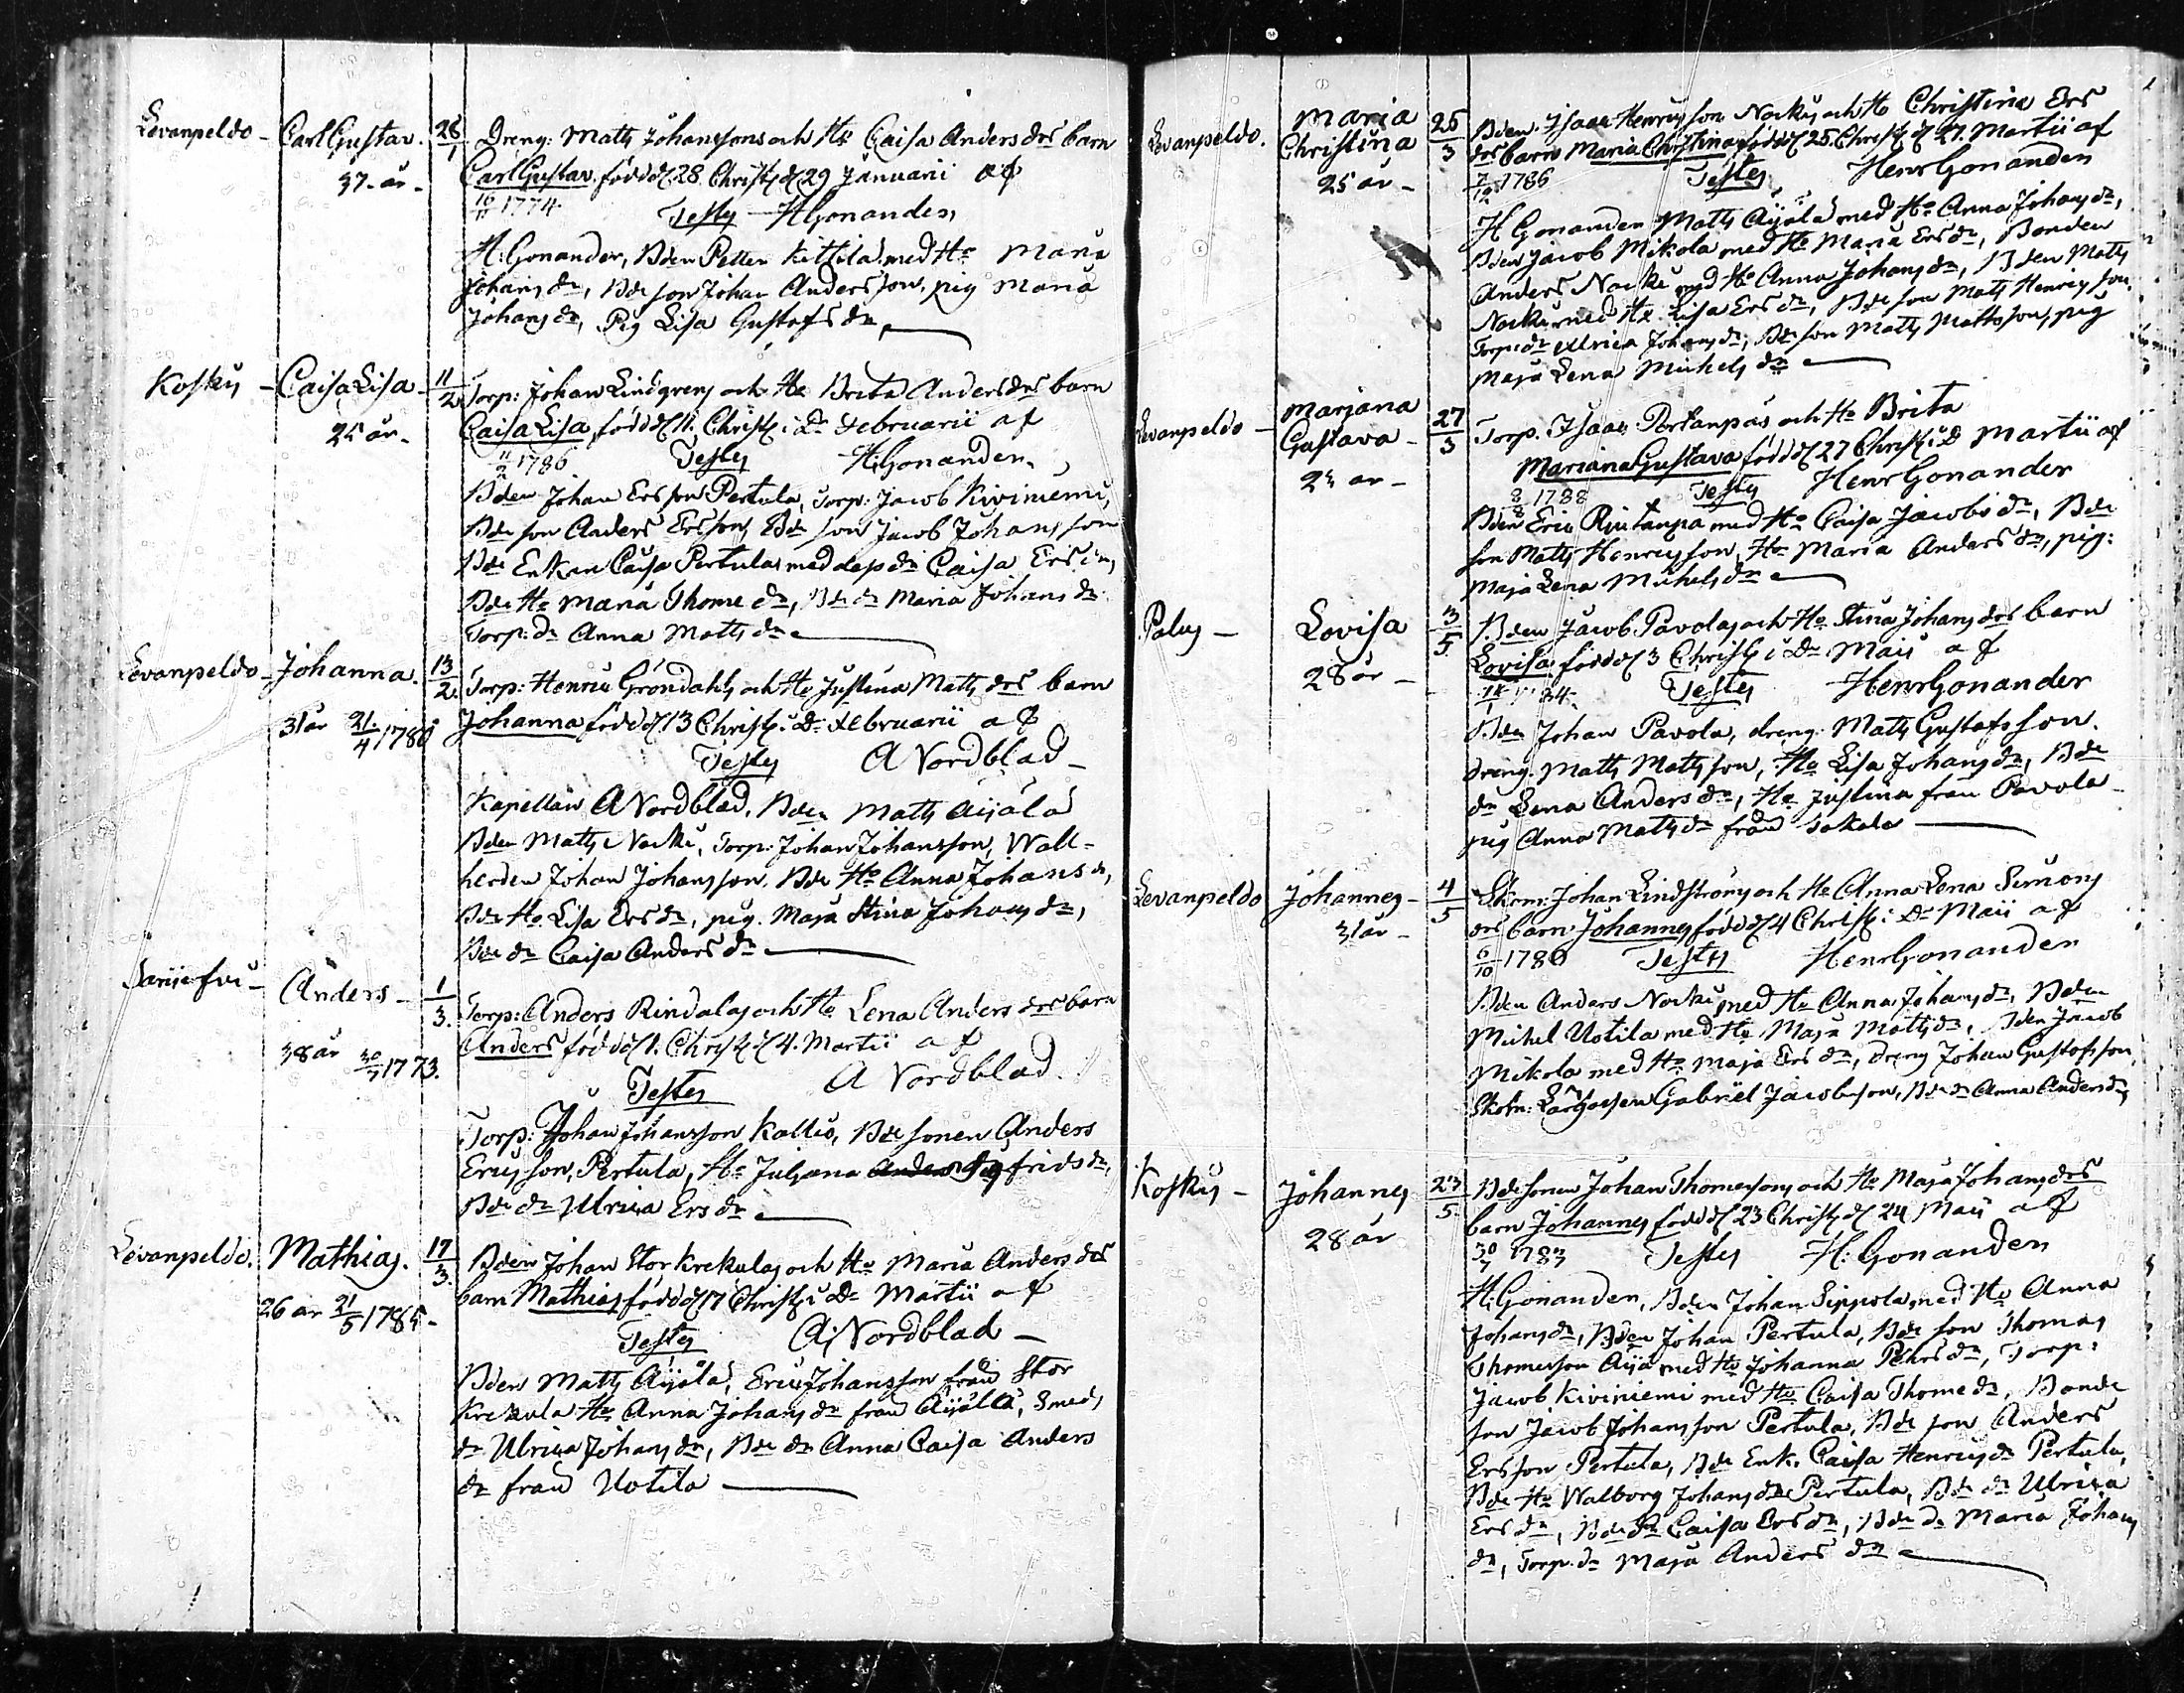 Levanpeldo - Carl Gustav. 28/1 Dreng: Matts Johanssons och H:o Caisa Anders drs barn
37. år - Carl Gustav, född d/ 28. Christ d/ 29 Januari af
16/11 1774. Testes H Gonander,
H: Gonander, Bden Petter Kittila med H:o Maria
Johans dr, Bde son Johan Andersson, pig Maria
Johans dr, Pig Lisa Gustafs dr,
Koskis - Caisa Lisa - 11/2 Torp: Johan Lindgrens och H:o Brita Anders drs barn
25 år - Caisa Lisa, född d/ 11. Christ: i do Februarii af
11/2 1786 Testes H: Gonander.
Bden Johan Ersson Pertula, Torp: Jacob Kiviniemi,
Bde son Anders Ersson, Bde son Jacob Johansson
Bde Enkan Caisa Pertula, med dess dr Caisa Ers dr,
Bde H:o Maria Thome dr, Bde dr Maria Johans dr
Torp: dr Anna Matts dr
Levanpeldo - Johanna. 13/2 Torp: Henric Gröndahls och H:o Justina Matts drs barn
31 år 21/4 1780 Johanna född d/ 13 Christ: i do Februarii af
Testes A Nordblad -
Kapellan A Nordblad, Bden Matts Äijälä
Bden Matts Nocku, Torp: Johan Johansson, Wall-
herden Johan Johansson, Bde H:o Anna Johans dr,
Bde H:o Lisa Ers dr, pig. Maja Stina Johans dr,
Bde dr Caisa Anders dr
Anders - 1/3. Torp: Anders Rindalas och H:o Lena Anders drs barn
38 år 30/7 1773. Anders född d/ 1. Christ d/ 4. Martii af
Testes A Nordblad.
Torp: Johan Johansson Kallio, Bde sonen Anders
Ericsson, Pertula, H:o Juliana Sigfrids dr,
Bde dr Ulrica Ers dr
Levanpeldo. Mathias. 17/3. Bden Johan Storkrekulas och H:o Maria Anders drs
26 år 21/5 1785 - barn Mathias född d/ 17 Christ i do Martii af
Testes A: Nordblad -
Bden Matts Äijälä, Eric Johansson från Stor
Krekula H:o Anna Johans dr från Äijälä, Smeds
dr Ulrica Johans dr, Bde dr Anna Caisa Anders
dr från Uotila
Levanpeldo. Maria Christina 25/3 Bden Isaac Henricsson Nockus och H:o Christina Ers
25 år - drs barn Maria Christina född d/ 25. Christ d/ 27. Martii af
7/12 1786 Testes Henr Gonander
H Gonander Matts Äijälä med H:o Anna Johans dr,
Bden Jacob Mikola med H:o Maria Ers dr, Bonden
Anders Nocku med H:o Anna Johans dr, Bden Matts
Nocku med H:o Lisa Ers dr, Bde son Matts Henricsson,
Torp: dr Ulrica Johans dr, Bde son Matts Mattsson, pig
Maja Lena Michels dr
Levanpeldo - Marjana Gustava - 27/3 Torp. Isaac Portanpäs och H:o Brita
Mariana Gustava född d/ 27 Christ i do Martii af
8/8 1788 Testes Henr Gonander
Bden Eric Rintanpä med H:o Caisa Jacobs dr, Bde
son Matts Henricsson, H:o Maria Anders dr, pig:
Maja Lena Michels dr
Palus - Lovisa 3/5 Bden Jacob Pavolas och H:o Stina Johans drs barn
28 år - Lovisa född d/ 3 Christ i do Maii af
Testes Henr Gonander
Bden Johan Pavola, dreng. Matts Gustafsson.
dreng. Matts Mattsson, H:o Lisa Johans dr, Bde
dr Lena Anders dr, H:o Justina från Pavola
pig Anna Matts dr från Sakala
Levanpeldo Johannes - 4/5 Skom: Johan Lindströms och H:o Anna Lena Simons
31 år - drs barn Johannes född d/ 4 Christ: i do Maii af
6/10 1780 Testes Henr Gonander
Bden Anders Nocku med H:o Anna Johans dr, Bden
Michel Uotila med H:o Maja Matts dr, Bden Jacob
Mikola med H:o Maja Ers dr, dreng Johan Gustafsson,
Gabriel Jacobsson, Bde dr Anna Anders dr,
Koskis - Johannes 23/5 Bde sonen Johan Thomessons och H:o Maja Johans drs
28 år barn Johannes född d/ 23 Christ d/ 24 Maii af
30/7 1783 Testes H: Gonander
H: Gonander, Bden Johan Sippola, med H:o Anna
Johans dr, Bden Johan Pertula, Bde son Thomas
Thomesson Äijä med H:o Johanna Pehrs dr, Torp:
Jacob Kiviniemi med H:o Caisa Thome dr, Bonde
son Jacob Johansson Pertula, Bde son Anders
Ersson Pertula, Bde Enk. Caisa Henrics dr Pertula,
Bde H:o Walborg Johans dr Pertula, Bde dr Ulrica
Ers dr, Bde dr Caisa Ers dr, Bde dr Maria Johans
dr, Torp. dr Maja Anders dr